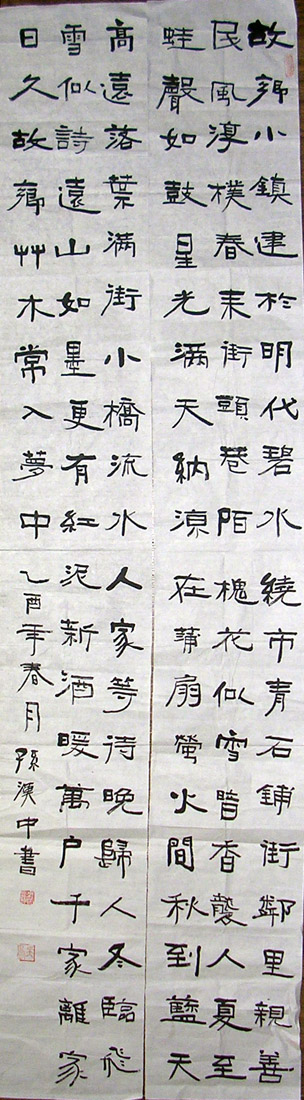 故鄉小鎮建於明代碧水繞市青石鋪街鄰里親善
民風淳樸春來街頭巷陌槐花似雪暗香襲人夏至
蛙聲如鼓星光滿天納涼在蒲扇螢火間秋到藍天
高遠落葉滿街小橋流水人家等待晚歸人冬臨飛
雪似詩遠山如墨更有紅泥新酒暖萬户千家離家
日久故鄉艸木常入夢中乙酉年春月孫漢中書